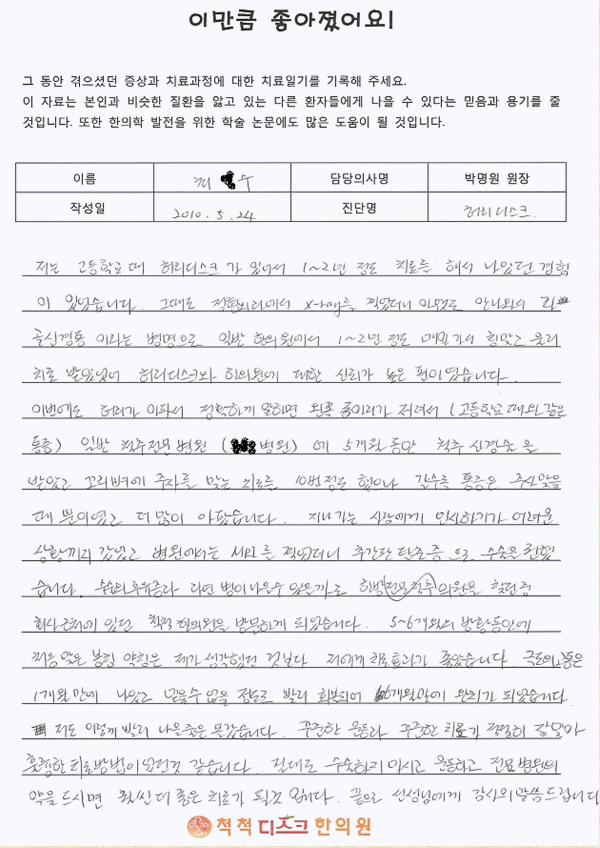 이만큼 좋아졌어요!
그 동안 겪으셨던 증상과 치료과정에 대한 치료일기를 기록해 주세요.
이 자료는 본인과 비슷한 질환을 앓고 있는 다른 환자들에게 나을 수 있다는 믿음과 용기를 줄
것입니다. 또한 한의학 발전을 위한 학술 논문에도 많은 도움이 될 것입니다.
이름 최 우 담당의사명 박명원 원장
작성일 2010.5.24 진단명 허리디스크.
저는 고등학교때 허리디스크가 있어서 1~2년 정도 치료를 해서 나았던 경험
이 있었습니다. 그때도 정형외과에서 X-ray를 찍었더니 안나와서 좌
골신경통 이라는 병명으로 일반 한의원에서 1~2년 정도 매일가서 침맞고 물리
치료 받았었어 허리디스크와 한의원에 대한 신뢰가 높은 편이였습니다.
이번에도 허리가 아파서 정확하게 말하면 왼쪽 종아리가 저려서 (고등학교때와 같은
통증) 일반 척추전문병원 ( 병원)에 5개월동안 척추 신경술을
받았고 꼬리뼈에 주사를 맞는 치료를 10번정도 했으나 갈수록 통증은 주사맞을
때 뿐이였고 더 많이 아팠습니다. 지나가는 사람에게 인사하기가 어려운
상황까지 갔었고 병원에서는 MRI를 찍었더니 추간판 탈출증으로 수술을 권했
습니다. 수술의 후유증과 과연 병이 나을수 있을까로 한방전문척추의원을 찾던중
회사근처에 있던 척척한의원을 방문하게 되었습니다. 5~6개월의 방황동안에
처음 맞은 봉침 약침은 제가 생각했던 것보다 저에게 치료효과가 좋았습니다. 극도의 통증은
1개월만에 나았고 믿을수 없을 정도로 빨리 회복되어 6개월만에 완치가 되었습니다.
저도 이렇게 빨리 나을줄은 몰랐습니다. 꾸준한 운동과 꾸준한 치료가 적절히 잘맞아
훌륭한 치료방법이였던것 같습니다. 절대로 수술하지마시고 운동하고 전문병원의
약을 드시면 훨씬 더 좋은 치료가 될것 입니다. 끝으로 선생님에게 감사의말씀드립니다
척척디스크한의원